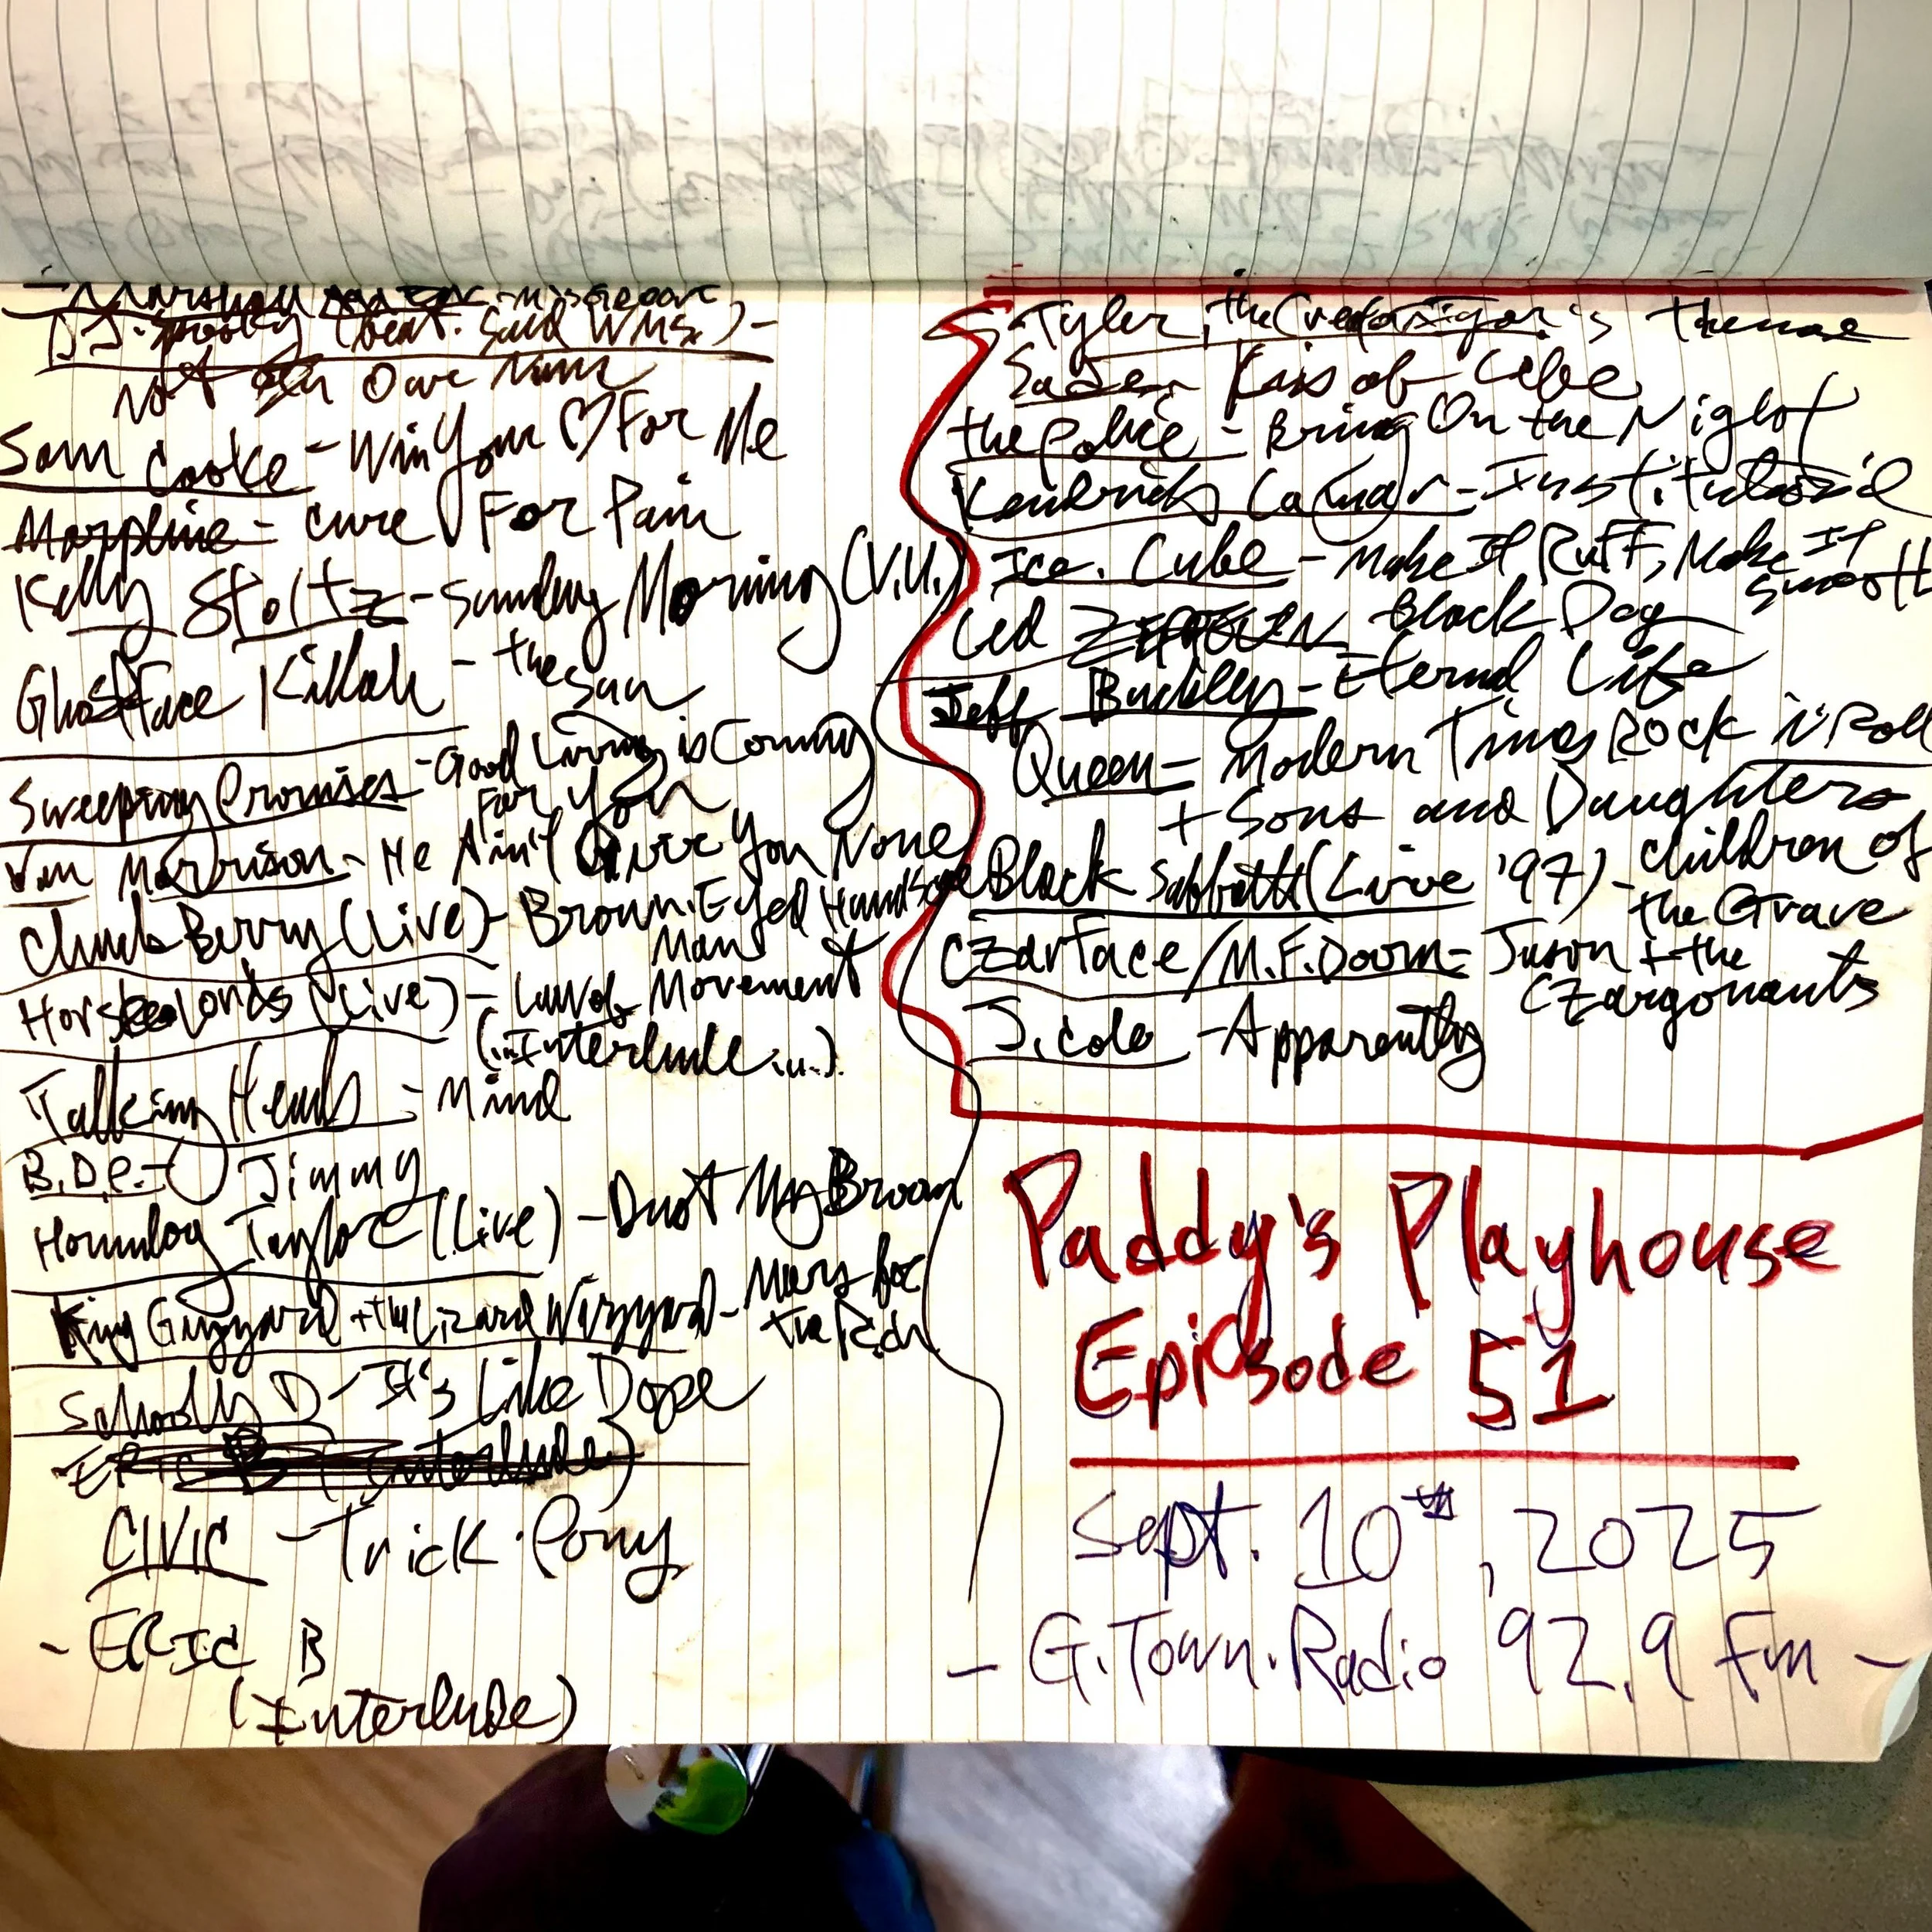 DJ. Spooky (feat. Saul Wms.) -
Not In Our Name
Sam Cooke - Win Your ♡ For Me
Morphine - Cure For Pain
Kelly Stoltz - Sunday Morning (V.U.)
Ghostface Killah - the
Sun
Sweeping Promises - Good Living is Coming
For You
Van Morrison - He Ain't Give You None
Chuck Berry (Live) - Brown. Eyed Handsome
Man
Horse Lords (Live) - Law of Movement
(..Interlude...)
Talking Heads = Mind
B.D.P. - Jimmy
Houndog Taylor (Live) - Dust My Broom
King Gizzard + the Lizard Wizzard - Mars for
the Rich
Schoolly D - It's Like Dope
Eric B (Interlude)
CIVIC - Trick. Pony
- ERIC B
(Interlude)
Tyler, the Creator - Igor's theme
Kiss of Life
the Police - Bring On the Night
Kendrick Lamar - Institutional
Ice. Cube - Make It Ruff, Make It
Smooth
Led ZEPPELIN Black Dog
Jeff Buckley - Eternal Life
Queen = Modern Times Rock n' Roll
+ Sons and Daughters
Black Sabbath (Live '97) - Children of
the Grave
Czarface / M.F. Doom = Jason + the
Czargonauts
J. Cole - Apparently
Paddy's Playhouse
Episode 51
Sept. 10th, 2025
- G.Town.Radio 92.9 Fm -